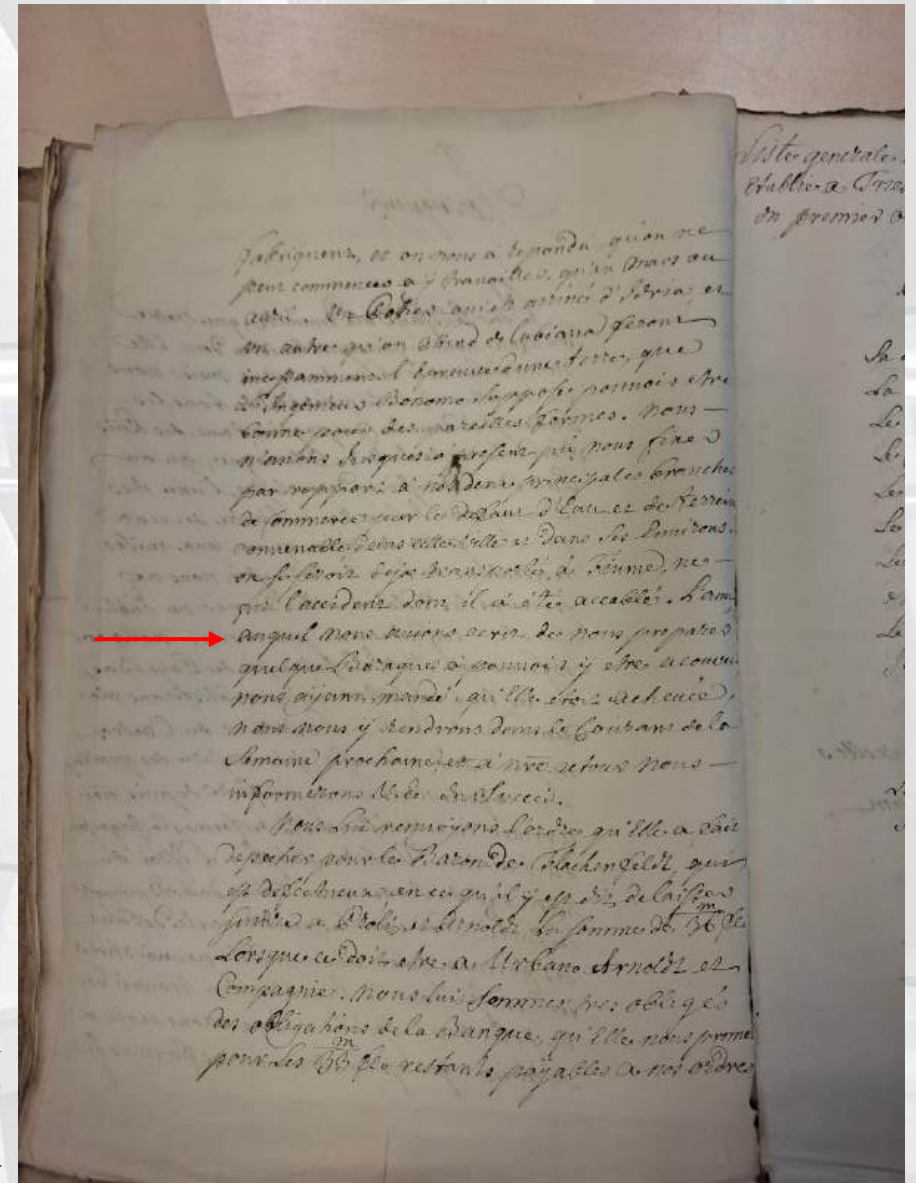 fabriquent, et on nous a repondu qu'on ne
peut commencer a y travailler, qu'en Mars ou
avril. Le Potier qui est arrivé d'Idria, et
un autre qu'on attend de Lubiana feront
incessamment l'épreuve d'une terre, que
l'Ingenieur Bonomo suppose pouvoir etre
bonne pour des pareilles formes. Nous
n'avons jusques à present pû nous fixer
par rapport à nos deux principales branches
de Commerce par le defaut d'Eau et de terrein
convenable dans cette ville et dans ses Environs.
on se seroit deja transporté à Fiume, ne
fut l'accident dont il a été accablé. L'ami
auquel nous avions ecrit de nous preparer
quelque Baraque à pouvoir y etre a couvert
nous ayant mandé qu'elle étoit achevée,
nous nous y rendrons dans le Courant de la
Semaine prochaine, et a nre retour nous
informerons du Succés.
Nous lui renvoyons l'ordre qu'Elle a fait
depecher pour le Baron de Flachenfeldt, qui
est defectueux en ce qu'il y est dit de laisser
a Proli, et Arnoldt la somme de 36 m fls
Lorsque ce doit etre a Urbano Arnoldt et
Compagnie. Nous lui sommes tres obligés
des obligations de la Banque, qu'Elle nous promet
pour Les 33 m fls restants payables a nos ordres
Liste generale
établie a Tries
en premier
La
La
Le
Le
Le
Le
Le
Le